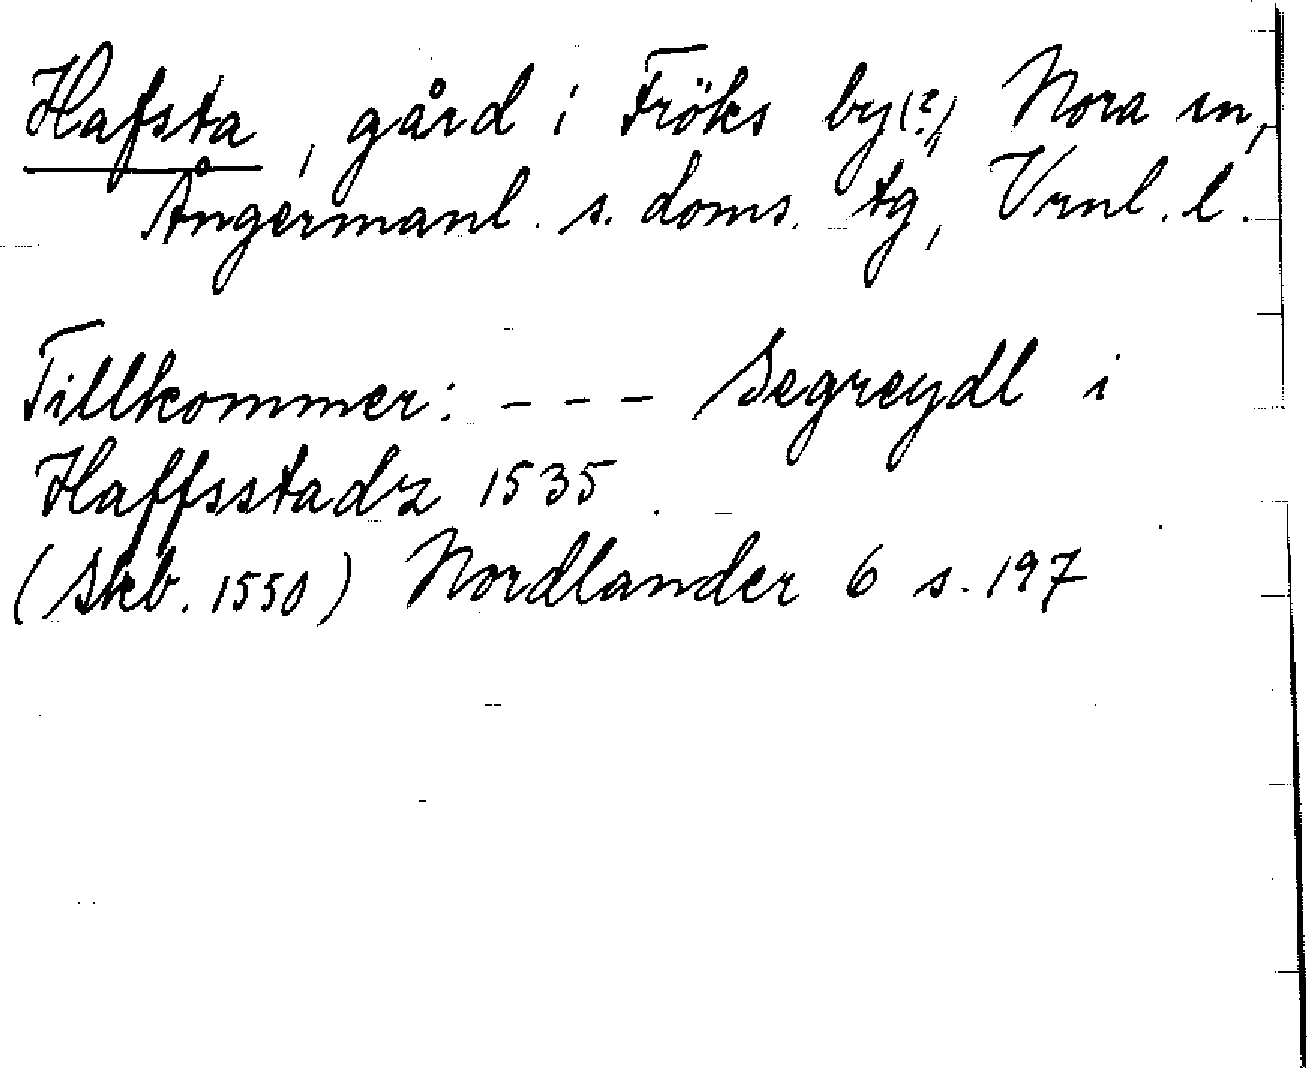 Hafsta, gård i Fröks by(?), Nora sn,
Ångermanl. s. doms. tg, Vrnl. l.
Tillkommer: - - - Segreydl i
Haffsstadz 1535.
(Skb. 1550) Nordlander 6 s. 197